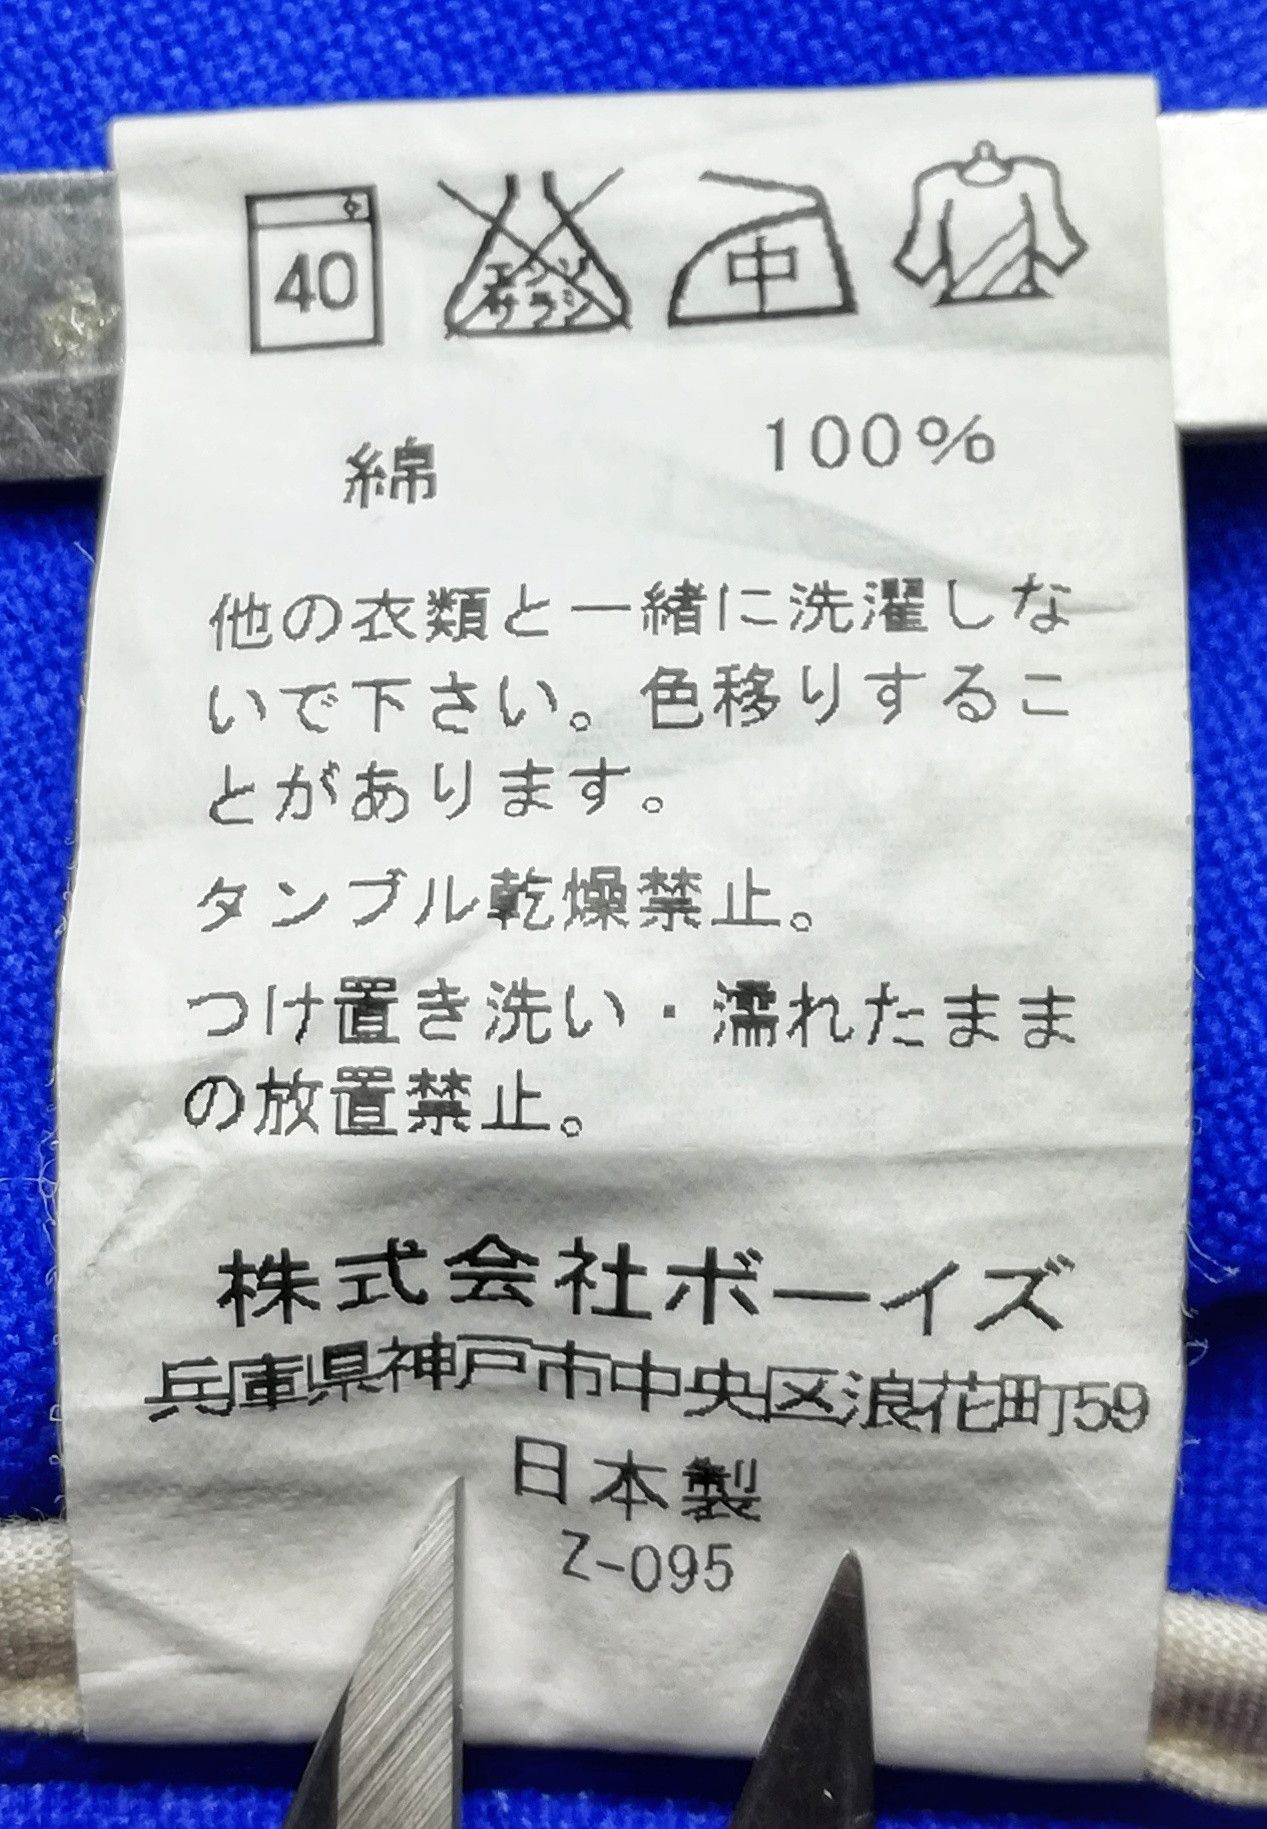 40
エンソ
サラシ
中
綿 100%
他の衣類と一緒に洗濯しな
いで下さい。色移りするこ
とがあります。
タンブル乾燥禁止。
つけ置き洗い・濡れたまま
の放置禁止。
株式会社ボーイズ
兵庫県神戸市中央区浪花町59
日本製
Z-095